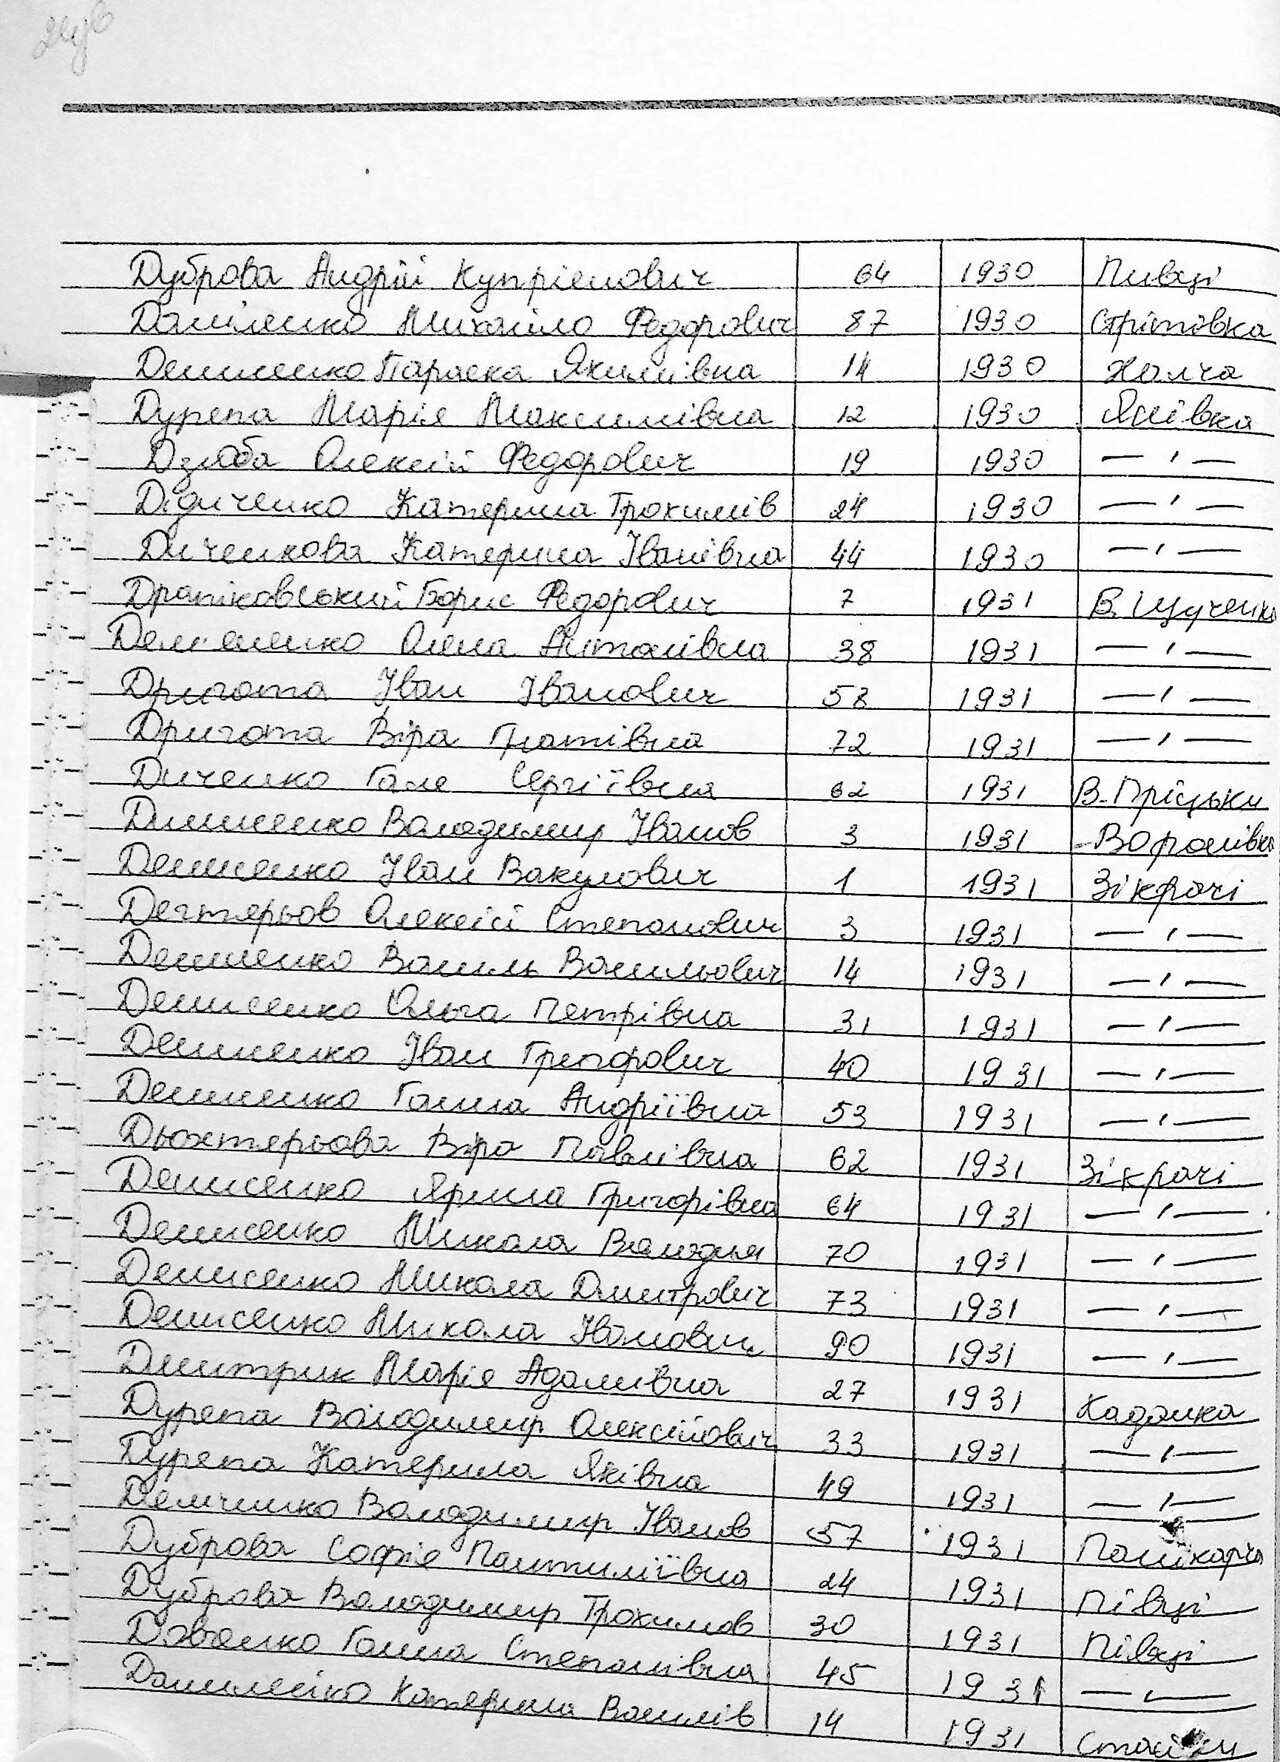 Дуброва Андрій Купріенович 64 1930 Пивці
Даніленко Михайло Федорович 87 1930 Стрітівка
Демиленко Параска Якимівна 14 1930 Халча
Дурепа Марія Максимівна 12 1930 Янівка
Дзюба Олексій Федорович 19 1930 — " —
Дідиченко Катерина Трохимів 24 1930 — " —
Диченкова Катерина Іванівна 44 1930 — " —
Драпіковський Борис Федорович 7 1931 В. Щученка
Дем'яненко Олена Антонівна 38 1931 — " —
Дригота Іван Іванович 58 1931 — " —
Дригота Віра Гнатівна 72 1931 — " —
Диченко Галя Сергіївна 62 1931 В. Пріцьки
Володимир Іванов 3 1931 Воронівка
Денисенко Іван Вакулович 1 1931 Зікрачі
Дегтярьов Олексій Степанович 3 1931 — " —
Денисенко Василь Васильович 14 1931 — " —
Денисенко Ольга Петрівна 31 1931 — " —
Денисенко Іван Григорович 40 1931 — " —
Денисенко Ганна Андріївна 53 1931 — " —
Дьохтярьова Віра Павлівна 62 1931 Зікрачі
Денисенко Ярина Григорівна 64 1931 — " —
Денисенко Микола 70 1931 — " —
Денисенко Микола Дмитрович 73 1931 — " —
Денисенко Микола Іванович 90 1931 — " —
Дмитрик Марія Адамівна 27 1931 Кадомка
Дурепа Володимир Олексійович 33 1931 — " —
Дурепа Катерина Яківна 49 1931 — " —
Демченко Володимир Іванов 57 1931
Дуброва Софія Пантиліївна 24 1931 Півці
Дуброва Володимир Трохимов 30 1931 Півці
Ганна Степанівна 45 1931 — " —
Даниленко Катерина Василів 14 1931